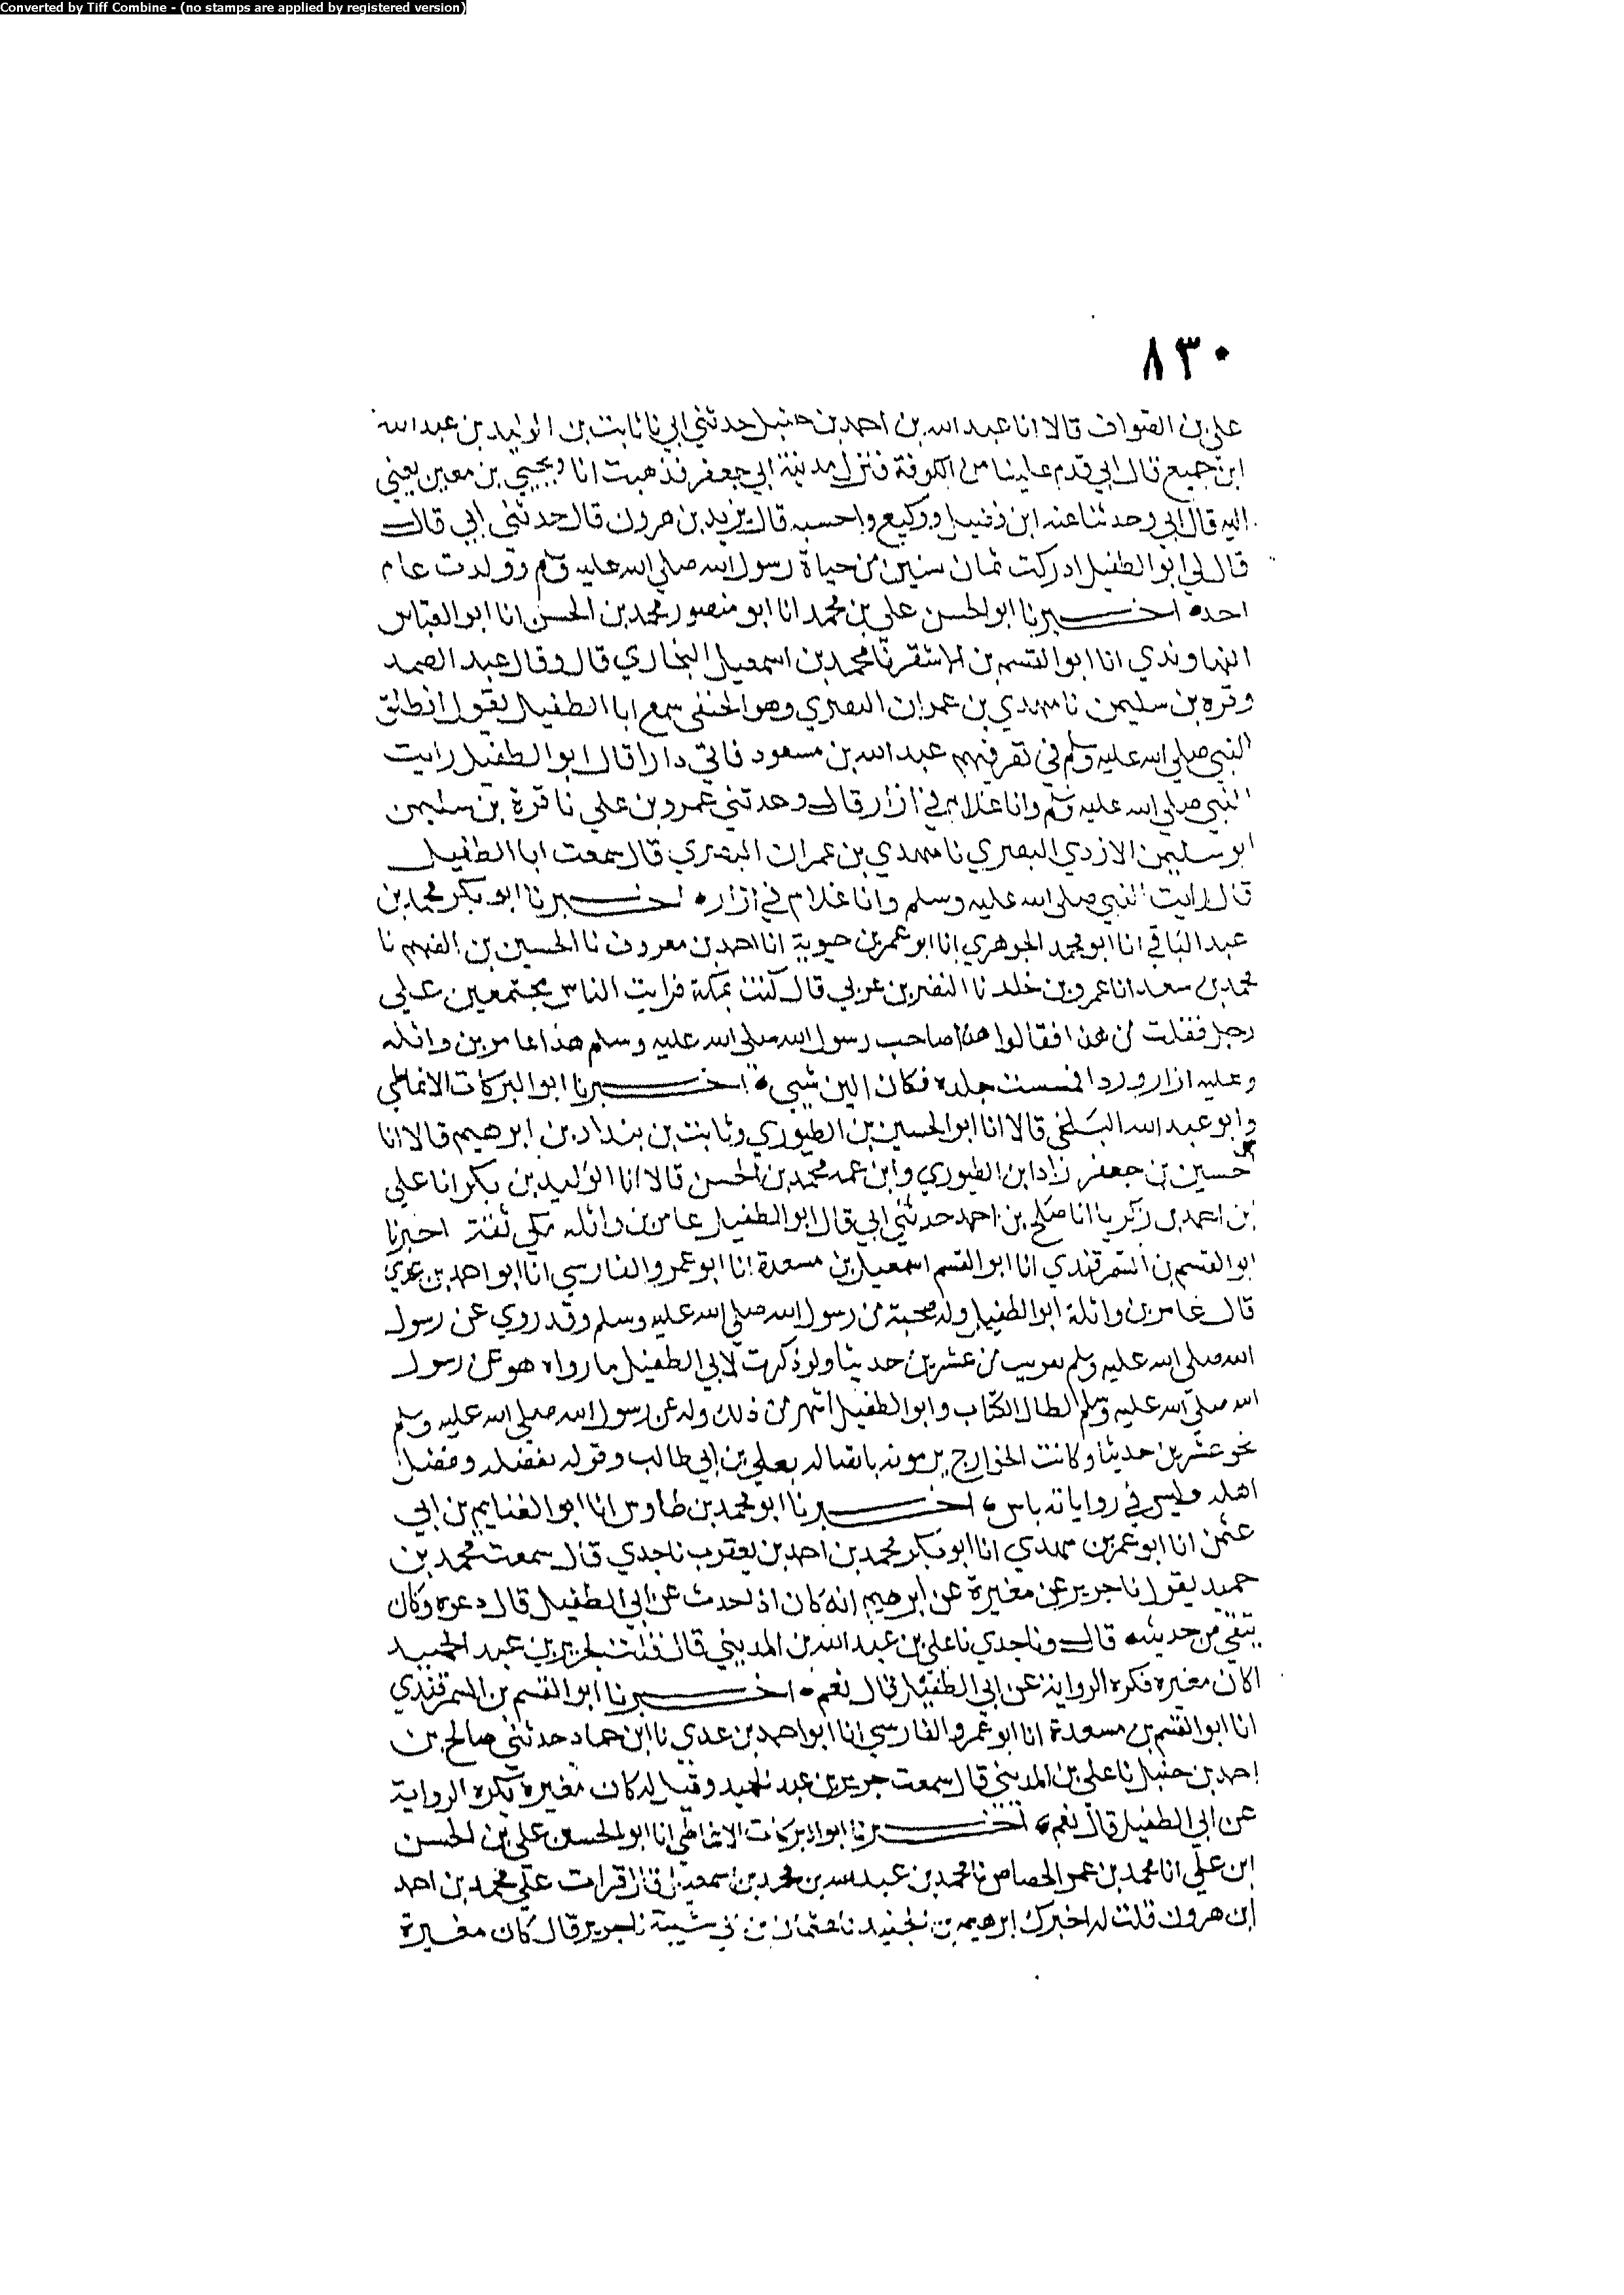 Converted by Tiff Combine - (no stamps are applied by registered version)
٨٣٠
علي بن الصواف قالا انا عبد الله بن احمد بن حنبل حدثني ابي نا ثابت بن الوليد بن عبد الله
ابن جميع قال ابي قدم علينا من الكوفة فنزل مدينة ابي جعفر فذهبت انا ويحيى بن معين يعني
اليه قال ابي وحدثنا عنه ابن فضيل ووكيع واحسبه قال يزيد بن هرون قال حدثني ابي قال
قال لي ابو الطفيل ادركت ثمان سنين من حياة رسول الله صلى الله عليه وسلم وولدت عام
احد اخبرنا ابو الحسن علي بن محمد انا ابو منصور محمد بن الحسن انا ابو العباس
النهاوندي انا ابو القسم بن الاشقر نا محمد بن اسمعيل البخاري قال وقال عبد الصمد
وقره بن سليمن نا مهدي بن عمران البصري وهو الحنفي سمع ابا الطفيل يقول انطلق
النبي صلى الله عليه وسلم في نفر فيهم عبد الله بن مسعود فاتى دارا قال ابو الطفيل رايت
النبي صلى الله عليه وسلم وانا غلام في ازار قال وحدثني عمرو بن علي نا قرة بن سليمن
ابو سليمن الازدي البصري نا مهدي بن عمران البصري قال سمعت ابا الطفيل
قال رايت النبي صلى الله عليه وسلم وانا غلام في ازار اخبرنا ابو بكر محمد بن
عبد الباقي انا ابو محمد الجوهري انا ابو عمر بن حيوية انا احمد بن معروف نا الحسين بن الفهم نا
محمد بن سعد انا عمرو بن خلد نا النضر بن عربي قال كنت بمكة فرايت الناس مجتمعين على
رجل فقلت من هذا فقالوا هذا صاحب رسول الله صلى الله عليه وسلم هذا عامر بن واثله
وعليه ازار وردا فمسست جلده فكان الين شيي اخبرنا ابو البركات الانماطي
وابو عبد الله البلخي قالا انا ابو الحسين بن الطيوري وثابت بن بندار بن ابرهيم قالا انا
حسين بن جعفر زاد ابن الطيوري وابن عمه محمد بن الحسن قالا انا الوليد بن بكر انا علي
بن احمد بن زكريا انا صلح بن احمد حدثني ابي قال ابو الطفيل عامر بن واثله مكي ثقة اخبرنا
ابو القسم بن السمرقندي انا ابو القسم اسمعيل بن مسعدة انا ابو عمرو الفارسي انا ابو احمد بن عدي
قال عامر بن واثلة ابو الطفيل وله صحبة من رسول الله صلى الله عليه وسلم وقد روي عن رسول
الله صلى الله عليه وسلم قريب من عشرين حديثا ولو ذكرت لابي الطفيل ما رواه هو عن رسول
الله صلى الله عليه وسلم لطال الكتاب وابو الطفيل اشهر من ذلك وله عن رسول الله صلى الله عليه وسلم
نحو عشرين حديثا وكانت الخوارج يرمونه باتصاله بعلي بن ابي طالب وقوله بفضله وفضل
اهله وليس في رواياته باس اخبرنا ابو محمد بن طاوس انا ابو الغنايم بن ابي
عثمن انا ابو عمر بن مهدي انا ابو بكر محمد بن احمد بن يعقوب نا جدي قال سمعت محمد بن
حميد يقول نا جرير عن مغيرة عن ابرهيم انه كان اذ احدث عن ابي الطفيل قال دعوه وكان
يتقي من حديثه قال ونا جدي نا علي بن عبد الله بن المديني قال قلت لجرير بن عبد الحميد
اكان مغيره فكره الرواية عن ابي الطفيل قال نعم اخبرنا ابو القسم بن السمرقندي
انا ابو القسم بن مسعدة انا ابو عمرو الفارسي انا ابو احمد بن عدي نا ابن حماد حدثني صالح بن
احمد بن حنبل نا علي بن المديني قال سمعت جرير بن عبد الحميد وقيل له كان مغيره يكره الرواية
عن ابي الطفيل قال نعم اخبرنا ابو البركات الانماطي انا ابو الحسين علي بن الحسن
ابن علي انا محمد بن عمر الحصاص نا محمد بن عبد الله بن محمد بن اسمعيل قال قرات على محمد بن احمد
ابن هرون قلت له اخبرك ابرهيم بن الجنيد نا عثمان بن ابي شيبة نا جرير قال كان مغيرة